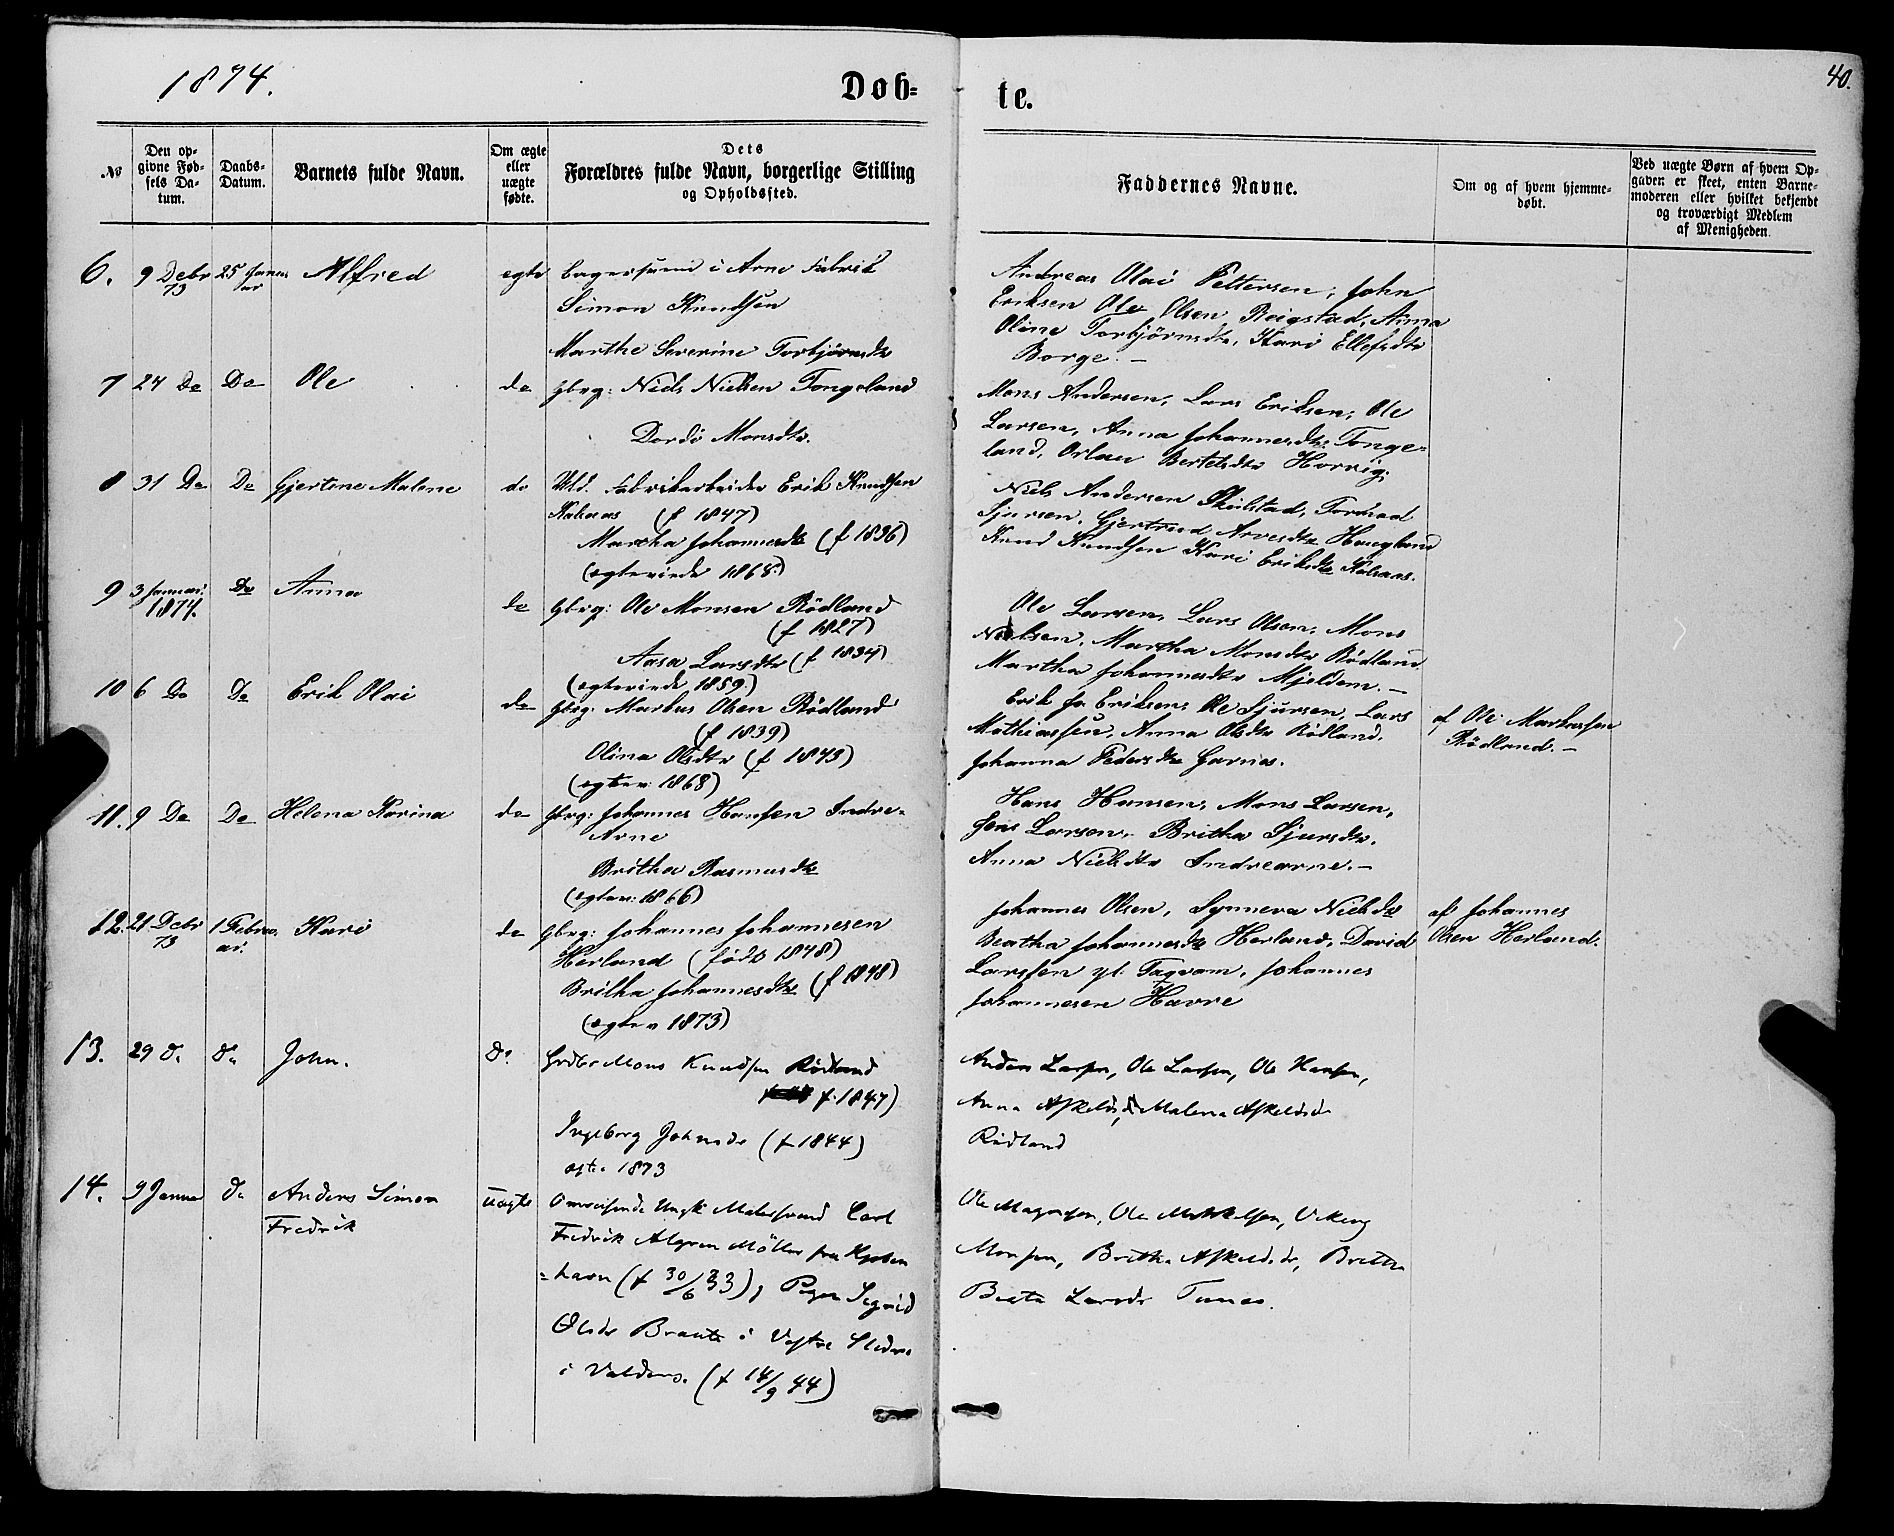 1874.
Døb=
te.
40.
№
Den op=
givne Fød=
sels Da=
tum.
Daabs=
Datum.
Barnets fulde Navn.
Om ægte
eller
uægte
fødte.
Dets
Forældres fulde Navn, borgerlige Stilling
og Opholdssted.
Faddernes Navne.
Om og af hvem hjemme=
døbt.
Ved uægte Børn af hvem Op=
gaven er skeet, enten Barne=
moderen eller hvilket bekjendt
og troværdigt Medlem
af Menigheden.
6. 9 Debr 73 25 Januar Alfred egte i Arne Fabrik
Simon Knudsen
Marthe Severine Torbjørnsdtr
Andreas Olai Pettersen, John
Eriksen Ole Olsen Reigstad, Anna
Oline Torbjørnsdtr, Kari Ellefsdtr
Borge. —
7 24 Do Do Ole do Gbrg: Niels Nielsen Tongeland
Dordi Monsdtr.
Mons Andersen, Lars Eriksen, Ole
Larsen, Anna Johannesdtr Tonge=
land, Berthelsdtr
8 31 Do Do Gjertine Malene do Fabrikarbeider Erik Knudsen
Kalsaas (f 1847)
Martha Johannesdtr (f 1836)
(egteviede 1868.)
Niels Andersen
Sjursen, Gjertrud Arnesdtr Haugland
Knud Knudsen Kari Eriksdtr Kalsaas.
9 3 Januar 1874. Do Anna do Gbrg: Ole Monsen Rødland
(f 1827)
Aasa Larsdtr (f 1834)
(egteviede 1859.)
Ole Larsen, Lars Olsen, Mons
Nielsen, Martha Monsdtr Rødland
Martha Johannesdtr Mjeldem. —
10 6 Do Do Erik Olai do Gbrg: Markus Olsen Rødland
(f 1839)
Olina Olsdtr (f 1843)
(egtev: 1868)
Erik Eriksen, Ole Sjursen, Lars
Mathiassen, Anna Olsdtr Rødland,
Johanna Pedersdtr Garnes.
af Ole Markussen
Rødland. —
11. 9 Do Do Helena Karina do Gbrg: Johannes Hansen Indre=
Arne
Britha Rasmusdtr
(egtev: 1866)
Hans Hansen, Mons Larsen,
Jens Larsen, Britha Sjursdtr.
Anna Nielsdtr Indrearne. —
12. 21 Debr 73 1 Februar. Kari do Gbrg: Johannes Johannesen
Herland (født 1848)
Britha Johannesdtr (f 1848)
(egtev 1873)
Johannes Olsen, Synneva Nielsdtr
Beatha Johannesdtr Herland, David
Larssen Johannes
Johannesen Havre
af Johannes
Olsen Herland.
13. 29 do do John. do Mons Knudsen Rødland
f. 1847)
Ingeborg Johnsdr (f 1844)
1873
Anders Larsen, Ole Larsen, Ole Hansen,
Anna Askeldsd, Malena Askeldsdr
Rødland
14. 9 Januar do Anders Simon
Fredrik
uægte Omreisende Ungk Malersvend Carl
Fredrik Møller fra Kjøben
=havn (f 30/6 33), Pigen Sigrid
Olsdr Braute i Vestre Slidre
i Valders. (f 14/9 44)
Ole Magnesen, Ole Mikkelsen,
Monsen, Britha Askeldsdr, Britha
Beata Larsdr Tunes.